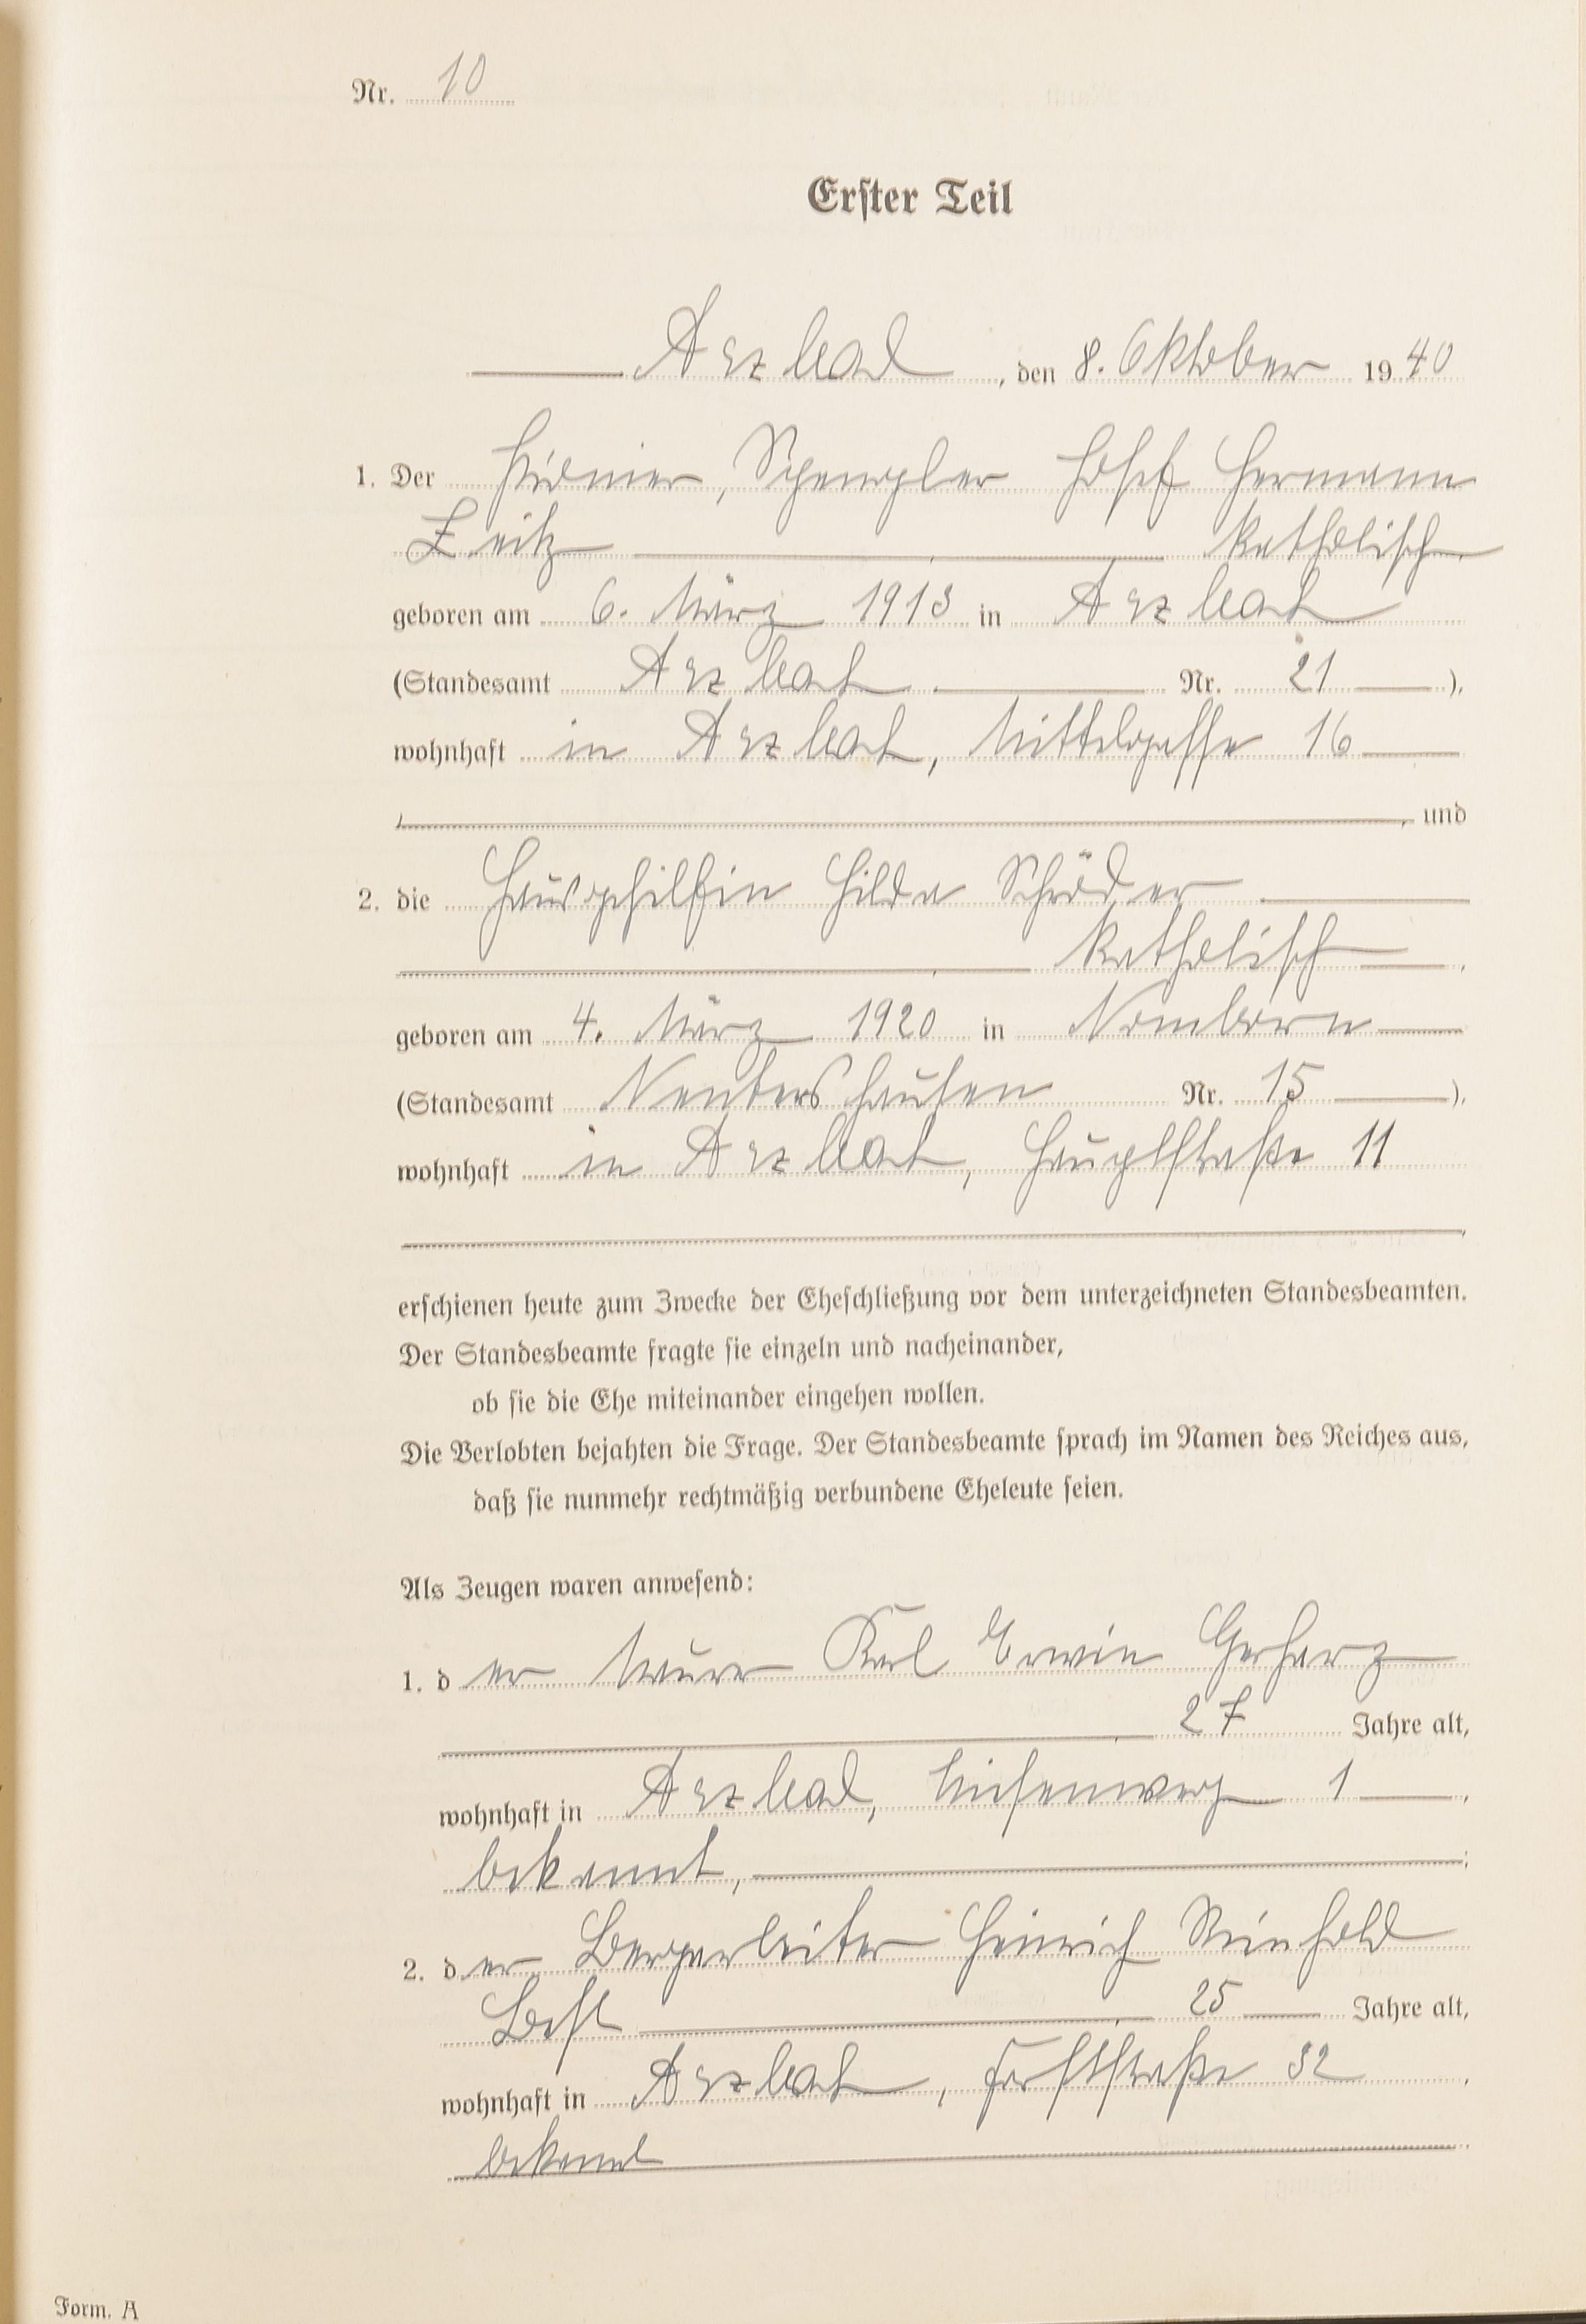 Nr. 10
Erster Teil
Arzbach, den 8. Oktober 1940
1. Der Pionier, Spengler Josef Hermann
Zeitz katholisch
geboren am 6. März 1913 in Arzbach
(Standesamt Arzbach Nr. 21 ),
wohnhaft in Arzbach, Mittelgasse 16
, und
2. die Hausgehilfin Hilda Schröder
katholisch ,
geboren am 4. März 1920 in Nomborn
(Standesamt Nentershausen Nr. 15 ),
wohnhaft in Arzbach, Hauptstraße 11
erschienen heute zum Zwecke der Eheschließung vor dem unterzeichneten Standesbeamten.
Der Standesbeamte fragte sie einzeln und nacheinander,
ob sie die Ehe miteinander eingehen wollen.
Die Verlobten bejahten die Frage. Der Standesbeamte sprach im Namen des Reiches aus,
daß sie nunmehr rechtmäßig verbundene Eheleute seien.
Als Zeugen waren anwesend:
1. der Maurer Karl Erwin Gerharz
27 Jahre alt,
wohnhaft in Arzbach, 1 ,
bekannt, ;
2. der Bergarbeiter Heinrich Reinhold
Best 25 Jahre alt,
wohnhaft in Arzbach, Forststraße 32 ,
bekannt
Form. A